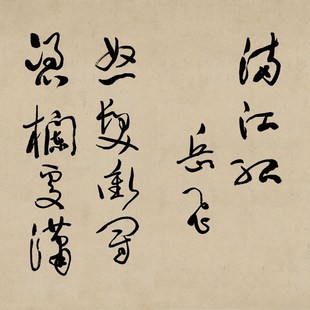 满江红
岳飞
怒发冲冠
凭栏处潇